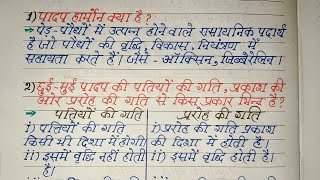 1) पादप हार्मोन क्या है?
→ पेड़-पौधों में उत्पन्न होने वाले रासायनिक पदार्थ
है जो पौधों की वृद्धि, विकास, नियंत्रण में
सहायता करते हैं। जैसे - ऑक्सिन, जिब्बेरेलिन।
2) छुई-मुई पादप की पत्तियों की गति, प्रकाश की
ओर प्ररोह की गति से किस प्रकार भिन्न है?
→ पत्तियों की गति
प्ररोह की गति
i) पत्तियों की गति
किसी भी दिशा में होगी
ii) इसमें वृद्धि नहीं होती
है।
i) प्ररोह की गति प्रकाश
की दिशा में होती है।
ii) इसमें वृद्धि होती है।